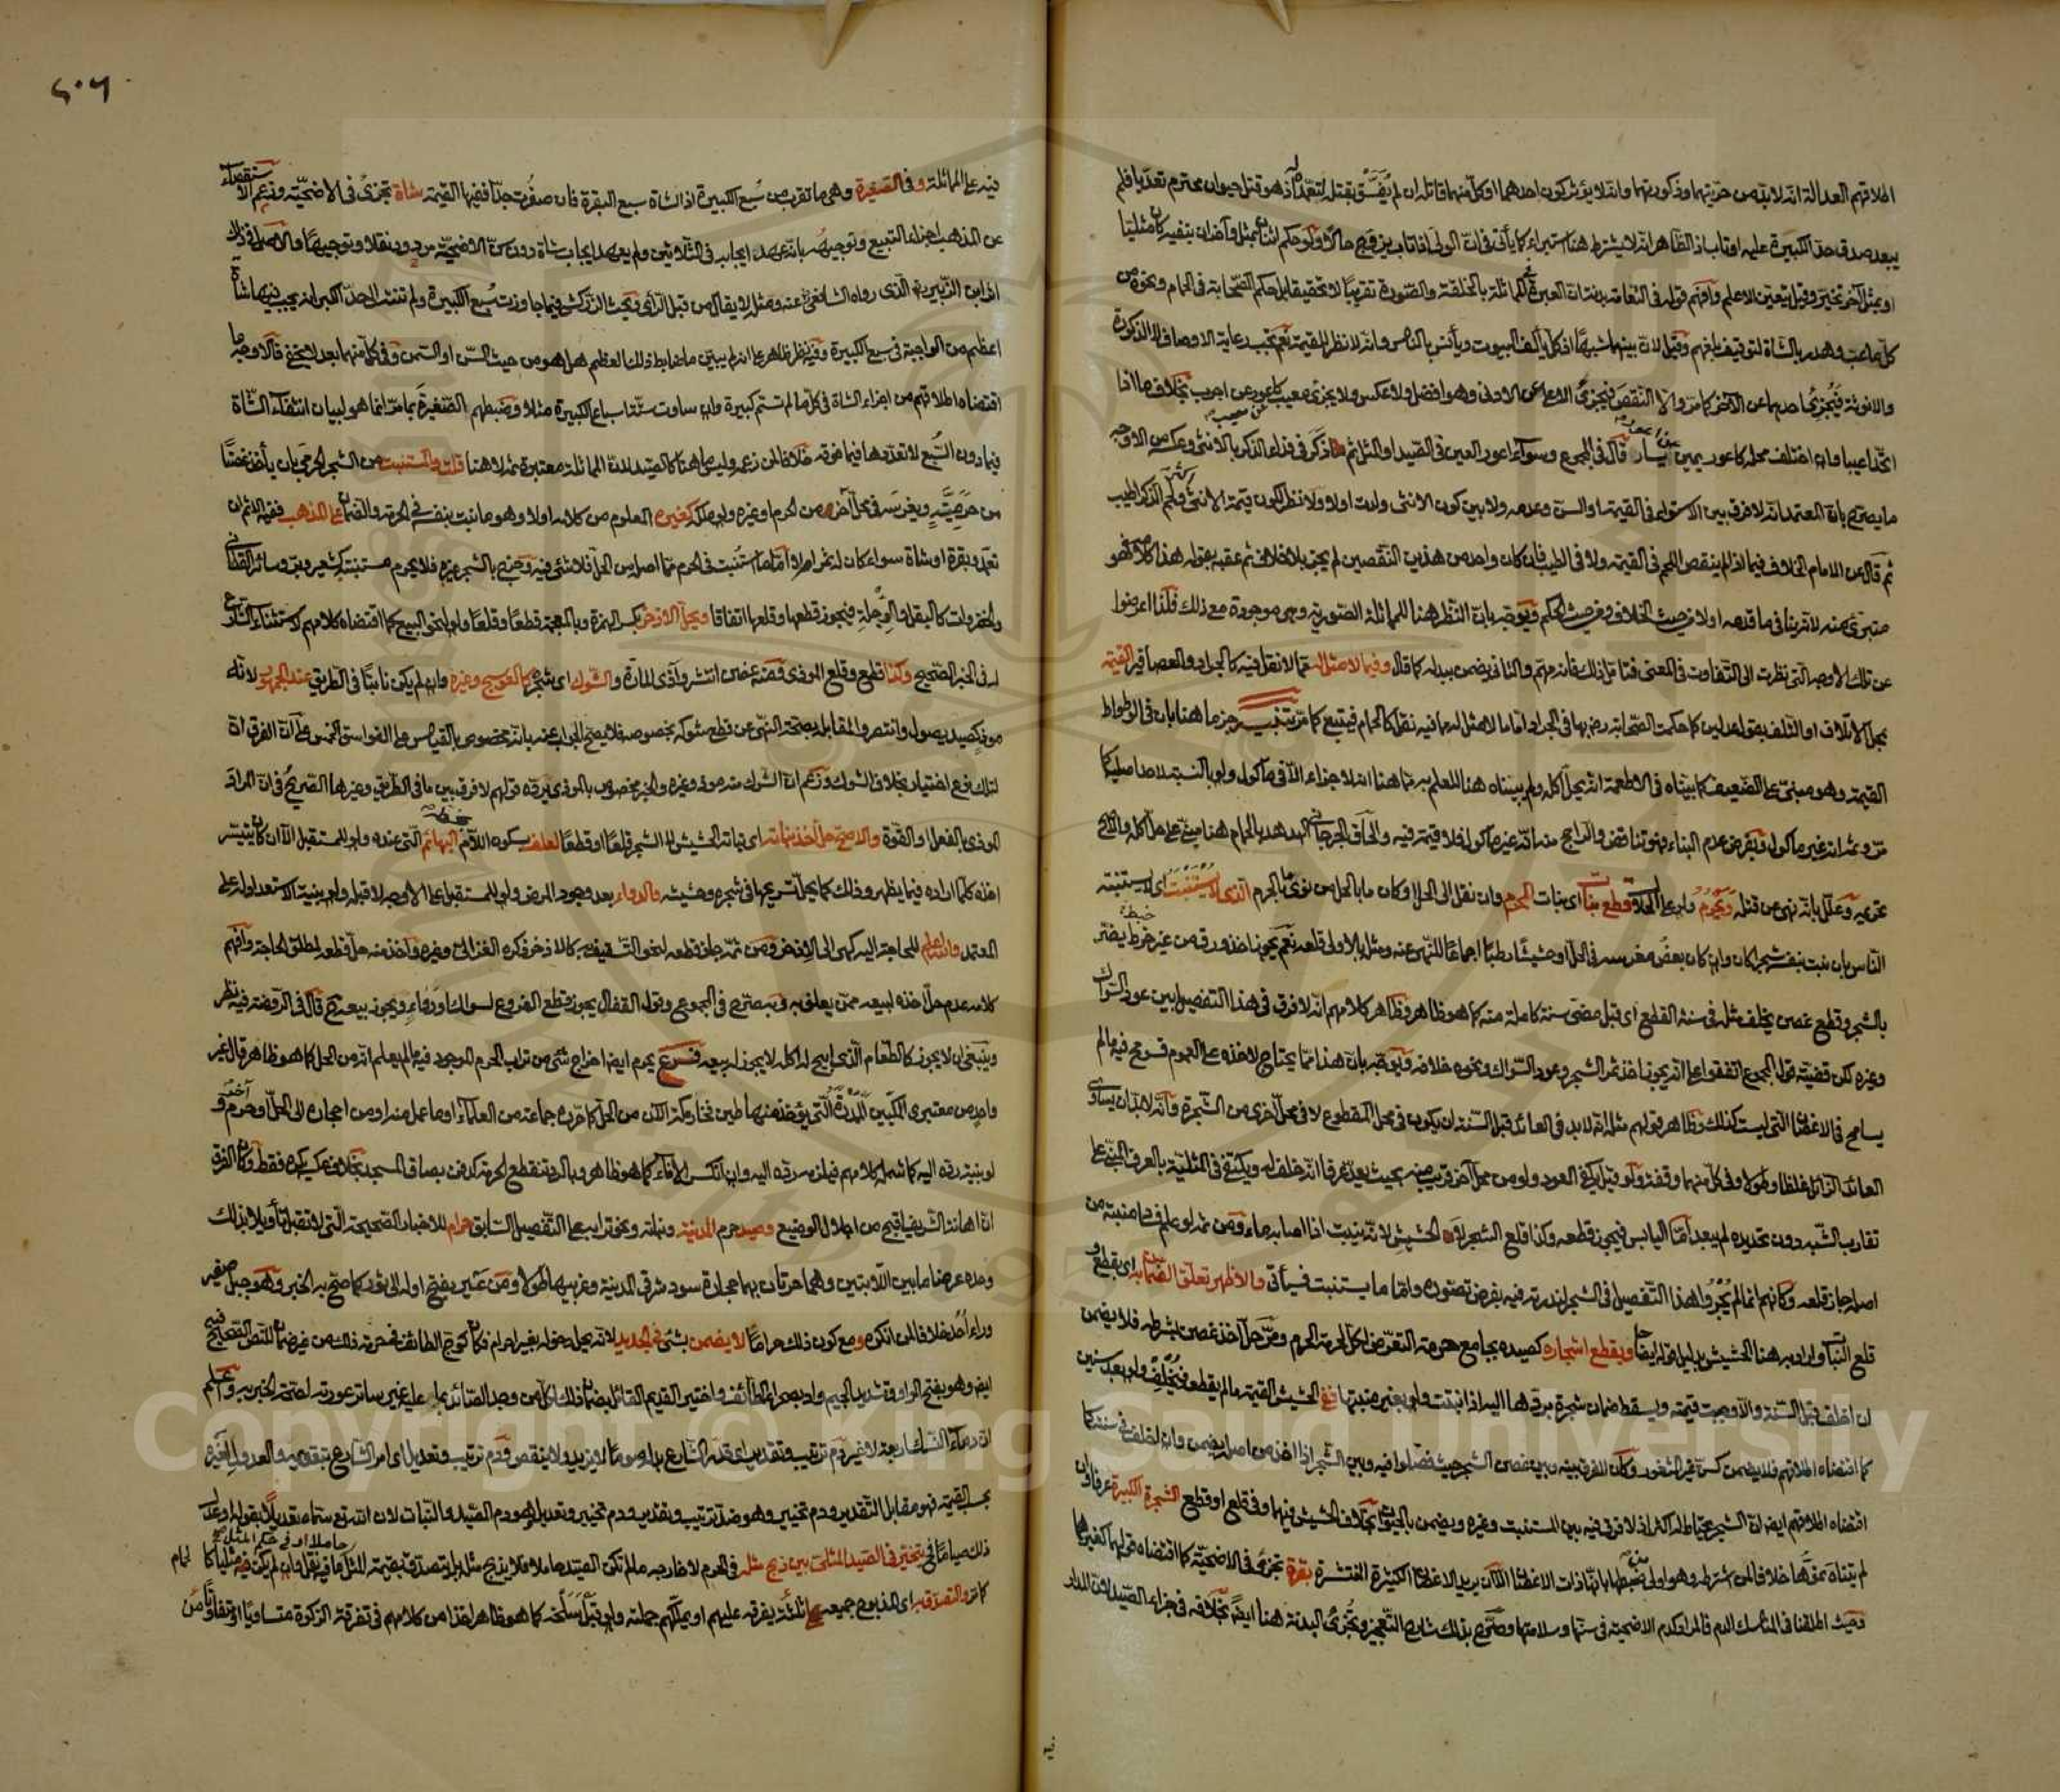 اطلاقهم العدالة انه لا بد من حريتهما وذكورتهما وانه لا يؤثر كون احدهما او كل منهما قاتله ان لم يفسق بقتله لتعمده اذ هو قتل حيوان محترم تعديا فلم
يبعد صدق حد الكبيرة عليه او تاب اذ الظاهر انه لا يشترط هنا استبراء كما يأتي في ان الولي اذا تاب يزوج حالا ولو حكم اثنان بمثل وآخران بنفيه كان مثليا
او بمثل آخر تخير وقيل يتعين الاعلم وافهم قوله في النعامة بدنة ان العبرة في المماثلة بالخلقة والصورة تقريبا لا تحقيقا بل حكم الصحابة في الحمام ونحوه من
كل ما عب وهدر بالشاة لتوقيف بلغهم وقيل لان بينهما شبها اذ كل يألف البيوت ويأنس بالناس وانه لا نظر للقيمة نعم تجب رعاية الاوصاف الا الذكورة
والانوثة فيجزئ احدهما عن الآخر كما مر والا النقص فيجزئ الاعلى عن الادنى وهو افضل ولا عكس ولا يجزئ معيب كاعور عن اجرب بخلاف ما اذا
اتحدا عيبا وان اختلف محله كاعور يمين عن اعور يسار قال في المجموع وسواء اعور العين في الصيد او المثل ثم ذكر في فداء الذكر بالانثى وعكسه من الاوجه
ما يصرح بان المعتمد انه لا فرق بين الاستواء في القيمة او السن وعدمه ولا بين كون الانثى ولدت او لا ولا نظر لكون قيمة الانثى اكثر ولحم الذكر اطيب
ثم قال عن الامام الخلاف فيما اذا لم ينقص اللحم في القيمة ولا في الطيب فان كان واحد من هذين النقصين لم يجز بلا خلاف ثم عقبه بقوله هذا كلامه فهو
متبرئ منه لا تريثا في ما قدمه اولا من حيث الخلاف ومن حيث الحكم ويوجه بان النظر هنا للمماثلة الصورية وهي موجودة مع ذلك فلذا اعرضوا
عن تلك الاوجه التي نظرت الى التفاوت في المعنى فتامل ذلك فانه مهم والثاني يضمن ببدله كما قال وفيما لا مثل له مما لا نقل فيه كالجراد والعصافير القيمة
بمحل الاتلاف او التلف بقول عدلين كما حكمت الصحابة رضي بها في الجراد اما ما لا مثل له مما فيه نقل كالحمام فيتبع كما مر تنبيه جزما هنا بان في الوطواط
القيمة وهو مبني على الضعيف كما بيناه في الاطعمة انه يحل اكله ولم يبيناه هنا للعلم به مما هنا انه لا جزاء الا في مأكول ولو بالنسبة لاحد اصليه كما
مر وثم انه غير مأكول وبفرض عدم البناء فهو تناقض والراجح منه انه غير مأكول فلا قيمة فيه والحاق الجرجاني الهدهد بالحمام هنا مبني على حل اكله والراجح
تحريمه وعلل بانه نهى عن قتله ويحرم ولو على الحلال قطع نبات اي نبات الحرم وان نقل الى الحل او كان ما بالحل من نوى ما بالحرم الذي لا يستنبت اي لا يستنبته
الناس بان نبت بنفسه شجرا كان وان كان بعض مغرسه في الحل او حشيشا رطبا اجماعا للنهي عنه ومثله بالاولى قلعه نعم يجوز اخذ ورق من غير خبط يضر
بالشجر وقطع غصن يخلف مثله في سنة القطع اي قبل مضي سنة كاملة منه كما هو ظاهر وظاهر كلامهم انه لا فرق في هذا التفصيل بين عود السواك
وغيره لكن قضية قول المجموع اتفقوا على انه يجوز اخذ ثمر الشجر وعود السواك ونحوه خلافه ويوجه بان هذا مما يحتاج لاخذه على العموم فسومح فيه ما لم
يسامح في الاغصان التي ليست كذلك وظاهر قولهم مثله انه لا بد في العائد قبل السنة ان يكون في محل المقطوع لا في محل آخر من الشجرة وانه لا بد ان يساوي
العائد الزائل غلظا وطولا وفي كل منهما وقفة ولو قيل يكفي العود ولو من محل آخر قريب منه بحيث يعد عرفا انه خلف له ويكتفى في المثلية بالعرف المبني على
تقارب الشبه دون تحديده لم يبعد اما اليابس فيجوز قطعه وكذا قلع الشجر لا الحشيش لانه ينبت اذا اصابه ماء ومن ثم لو علم فساد منبته من
اصله جاز قلعه وكأنهم انما لم يجروا هذا التفصيل في الشجر لندرته فيه بفرض تصوره واما ما يستنبت فسيأتي والاظهر تعلق الضمان به اي بقطع
قلع النبات واراد به هنا الحشيش بدليل قوله ايضا وبقطع اشجاره كصيده بجامع حرمة التعرض لكل لحرمة الحرم ومر حل اخذ غصن بشرطه فلا يضمن
ان اخلف قبل السنة والا وجبت قيمته ويسقط ضمان شجرة بردها اليه اذا نبتت ولو بغير منبتها ففي الحشيش القيمة ما لم يقطع فيخلف ولو بعد سنين
كما اقتضاه اطلاقهم فلا يضمن كسن غير المثغور وكان الفرق بينه وبين غصن الشجر حيث فصلوا فيه وبين الشجر اذا اخذ من اصله يضمن وان اخلف في سنته كما
اقتضاه اطلاقهم ايضا ان الشجر يحتاط له اكثر اذ لا فرق فيه بين المستنبت وغيره ويضمن بالحيوان بخلاف الحشيش فيهما وفي قلع او قطع الشجرة الكبيرة عرفا وان
لم يتناه نموها خلافا لمن اشترطه وهو اولى من ضبطها بانها ذات الاغصان اللهم ان يريد الاغصان الكثيرة المنتشرة بقرة تجزئ في الاضحية كما اقتضاه قولهما كغيرهما
وحيث اطلقنا في المناسك الدم فالمراد كدم الاضحية في سنها وسلامتها وصرح بذلك شارح التعجيز وتجزئ البدنة هنا ايضا بخلافه في جزاء الصيد لان المدار
ثمة على المماثلة وفي الصغيرة وهي ما تقرب من سبع الكبيرة اذ الشاة سبع البقرة فان صغرت جدا ففيها القيمة شاة تجزئ في الاضحية وزعم الاستقصاء
عن المذهب اجزاء التبيع وتوجيهه بانه عهد ايجابه في الثلاثين ولم يعهد ايجاب شاة دون سن الاضحية مردود نقلا وتوجيها والاصل في ذلك
اثر ابن الزبير الذي رواه الشافعي عنه ومثله لا يقال من قبل الرأي وبحث الزركشي فيما جاوزت سبع الكبيرة ولم تنته الى حد الكبر انه يجب فيها شاة
اعظم من الواجبة في سبع الكبيرة وفيه نظر ظاهر على انه لم يبين ما ضابط ذلك العظم هل هو من حيث السن او السمن وفي كل منهما بعد لا يخفى فالاوجه ما
اقتضاه اطلاقهم من اجزاء الشاة في كل ما لم تسم كبيرة وان ساوت ستة اسباع الكبيرة مثلا وضبطهم الصغيرة بما مر انما هو لبيان انتفاء الشاة
فيما دون السبع لا تعددها فيما فوقه خلافا لمن زعمه وليس ما هنا كالصيد لان المماثلة معتبرة ثم لا هنا قلت والمستنبت من الشجر الحرمي بان يأخذ غصنا
من حرمية ويغرسه في محل آخر من الحرم او غيره ولو ملكه كغيره المعلوم من كلامه اولا وهو ما نبت بنفسه في الحرمة والضمان على المذهب ففيه الاثم ان
تعمد وبقرة او شاة سواء كان له ثمر ام لا اما ما استنبت في الحرم مما اصله من الحل فلا شيء فيه وخرج بالشجر غيره فلا يحرم مستنبته كشعير وبر وسائر القطاني
والخضروات كالبقل والرجلة فيجوز قطعها وقلعها اتفاقا ويحل الاذخر بكسر الهمزة وبالمعجمة قطعا وقلعا ولو لنحو البيع كما اقتضاه كلامهم لاستثناء الشارع
له في الخبر الصحيح وكذا قطع وقلع المؤذي ومنه غصن انتشر وآذى المارة والشوك اي شجره كالعوسج وغيره وان لم يكن نابتا في الطريق عند الجمهور لانه
مؤذ كصيد يصول وانتصر للمقابل بصحة النهي عن قطع شوكه بخصوصه فلا يصح الجواب عنه بانه مخصوص بالقياس على الفواسق الخمس على ان الفرق ان
لتلك نوع اختيار بخلاف الشوك وزعم ان الشوك منه مؤذ وغيره والخبر مخصوص بالمؤذي يرده قولهم لا فرق بين ما في الطريق وغيرها الصريح في ان المراد
المؤذي بالفعل او القوة والاصح حل اخذ نباته اي نبات الحشيش لا الشجر قلعا او قطعا لعلف بسكون اللام البهائم التي عنده ولو للمستقبل الا ان كان يتيسر
اخذه كلما اراده فيما يظهر وذلك كما يحل تسريحها في شجره وحشيشه والدواء بعد وجود المرض ولو للمستقبل على الاوجه لا قبله ولو بنية الاستعداد له على
المعتمد والله اعلم للحاجة اليه كهي الى الاذخر ومن ثم جاز قطعه لنحو التسقيف به كالاذخر ذكره الغزالي وغيره واخذ منه حل قطعه لمطلق الحاجة وافهم
كلامه عدم حل اخذه لبيعه ممن يعلف به وبه صرح في المجموع وقول القفال يجوز قطع الفروع لسواك او دواء ويجوز بيعه ح قال في الروضة فيه نظر
وينبغي ان لا يجوز كالطعام الذي ابيح له اكله لا يجوز له بيعه فرع يحرم ايضا اخراج شيء من تراب الحرم الموجود فيه ما لم يعلم انه من الحل كما هو ظاهر قال غير
واحد من معتبري المكيين المدرة التي يؤخذ منها طين فخار مكة الآن من الحل كما حرره جماعة من العلماء او ما عمل منه او من احجاره الى الحل او حرم آخر
لو بنية رده اليه كما شمله كلامهم فيلزمه رده اليه وان انكسر الاناء كما هو ظاهر وبالرد تنقطع الحرمة كدفن بصاق المسجد بخلاف عكسه يكره فقط وكان الفرق
ان اهانة الشريف اقبح من اجلال الوضيع وصيد حرم المدينة ونباته ونحو ترابه على التفصيل السابق حرام للاخبار الصحيحة التي لا تقبل تأويلا بذلك
وحده عرضا ما بين اللابتين وهما حرتان بهما حجارة سود شرقي المدينة وغربيها وطولا من عير بفتح اوله الى ثور كما صح به الخبر وهو جبل صغير
وراء احد خلافا لمن انكره ومع كون ذلك حراما لا يضمن بشيء في الجديد لانه يحل دخوله بغير احرام فكان كوج الطائف فحرمة ذلك من غير ضمان للنص الصحيح فيه
ايضا وهو بفتح الواو وتشديد الجيم واد بصحراء الطائف واختير القديم القائل بضمان ذلك بكل من وجد الصائد بما عليه غير ساتر عورته لصحة الخبر به واعلم
ان دماء النسك اربعة لا غير دم ترتيب وتقدير اي قدر الشارع بدله صوما لا يزيد ولا ينقص ودم ترتيب وتعديل اي امر الشارع بتقويمه والعدول لغيره
بحسب القيمة فهو مقابل التقدير ودم تخيير وهو ضد ترتيب وتقدير ودم تخيير وتعديل وهو دم الصيد والنبات لان الله تع سماه تعديلا بقوله او عدل
ذلك صياما فح يتخير في الصيد المثلي بين ذبح مثله في الحرم لا خارجه ما لم تكن الصيد حاملا فلا يذبح مثله بل يتصدق بقيمة المثل
كما مر والتصدق به اي المذبوح جميعه ثلاثة يفرقه عليهم او يملكهم جملته ولو قبل سلخه كما هو ظاهر اخذا من كلامهم في تفرقة الزكوة متساويا او متفاوتا من
Copyright © King Saud University
1957